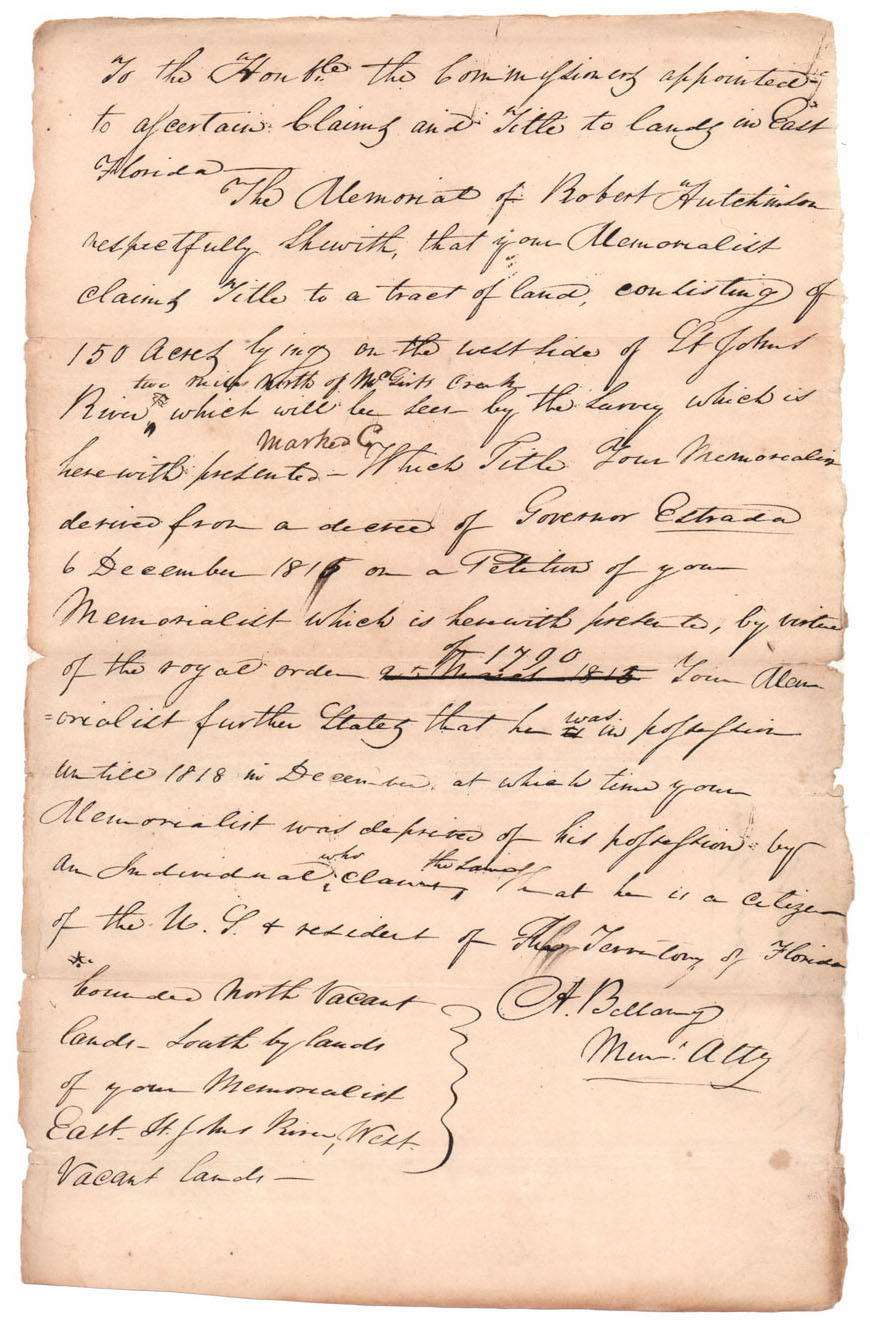 To the Honble the Commissioners appointed
to ascertain Claims and Title to lands in East
Florida
The Memorial of Robert Hutchinson
respectfully Shewith, that your Memorialist
claims Title to a tract of land, consisting of
150 Acres lying on the west side of St Johns
two miles North of McGirts Creek
River * which will be seen by the Survey which is
marked C
herewith presented - Which Title Your Memorialist
derived from a decree of Governor Estrada
6 December 1815 on a Petition of your
Memorialist which is herewith presented, by virtue
of 1790
of the royal order 25 March 1815 Your Mem
=orialist further States that he was in possession
untill 1818 in December at which time your
Memorialist was deprived of his possession by
who the same
an Individual claims that he is a citizen
of the U. S. & resident of The Territory of Florida
A. Bellamy
Meml Atty
*
bounded North Vacant
lands - South by lands
of your Memorialist
East St Johns River, West
Vacant lands -